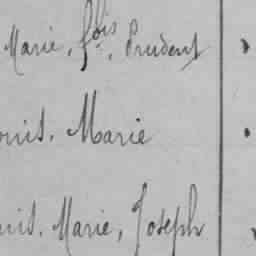 Marie, fois, Prudent
ouis. Marie
uis. Marie, Joseph